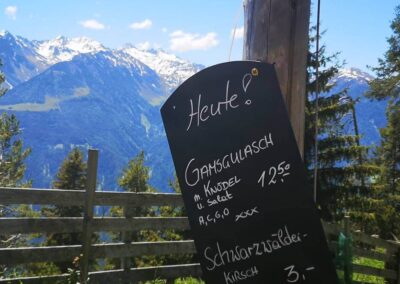 Heute!
GAMSGULASCH
m. KNÖDEL 12.50
u. Salat
A,C,G,O xxx
Schwarzwälder-
KIRSCH 3,-